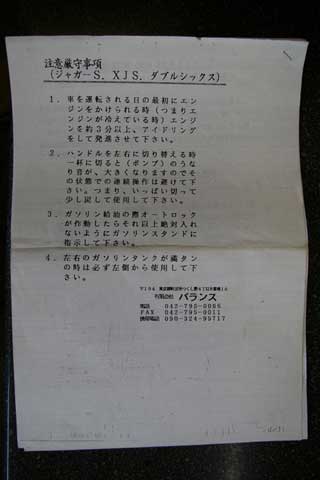 注意厳守事項
(ジャガーS.XJS.ダブルシックス)
1.車を運転される日の最初にエン
ジンをかけられる時(つまりエ
ンジンが冷えている時)エンジ
ンを約3分以上、アイドリング
をして発進させて下さい。
2.ハンドルを左右に切り替える時
一杯に切ると(ポンプ)のうな
り音が、大きくなりますのでそ
の状態での連続操作は避けて下
さい。つまり、いっぱい切って
少し戻して使用して下さい。
3.ガソリン給油の際オートロック
が作動したらそれ以上絶対入れ
ないようにガソリンスタンドに
指示して下さい。
4.左右のガソリンタンクが満タン
の時は必ず左側から使用して下
さい。
〒194 東京都町田市つくし野
有限会社 バランス
電話 042-795-0066
FAX 042-795-0011
携帯電話 090-324-99717